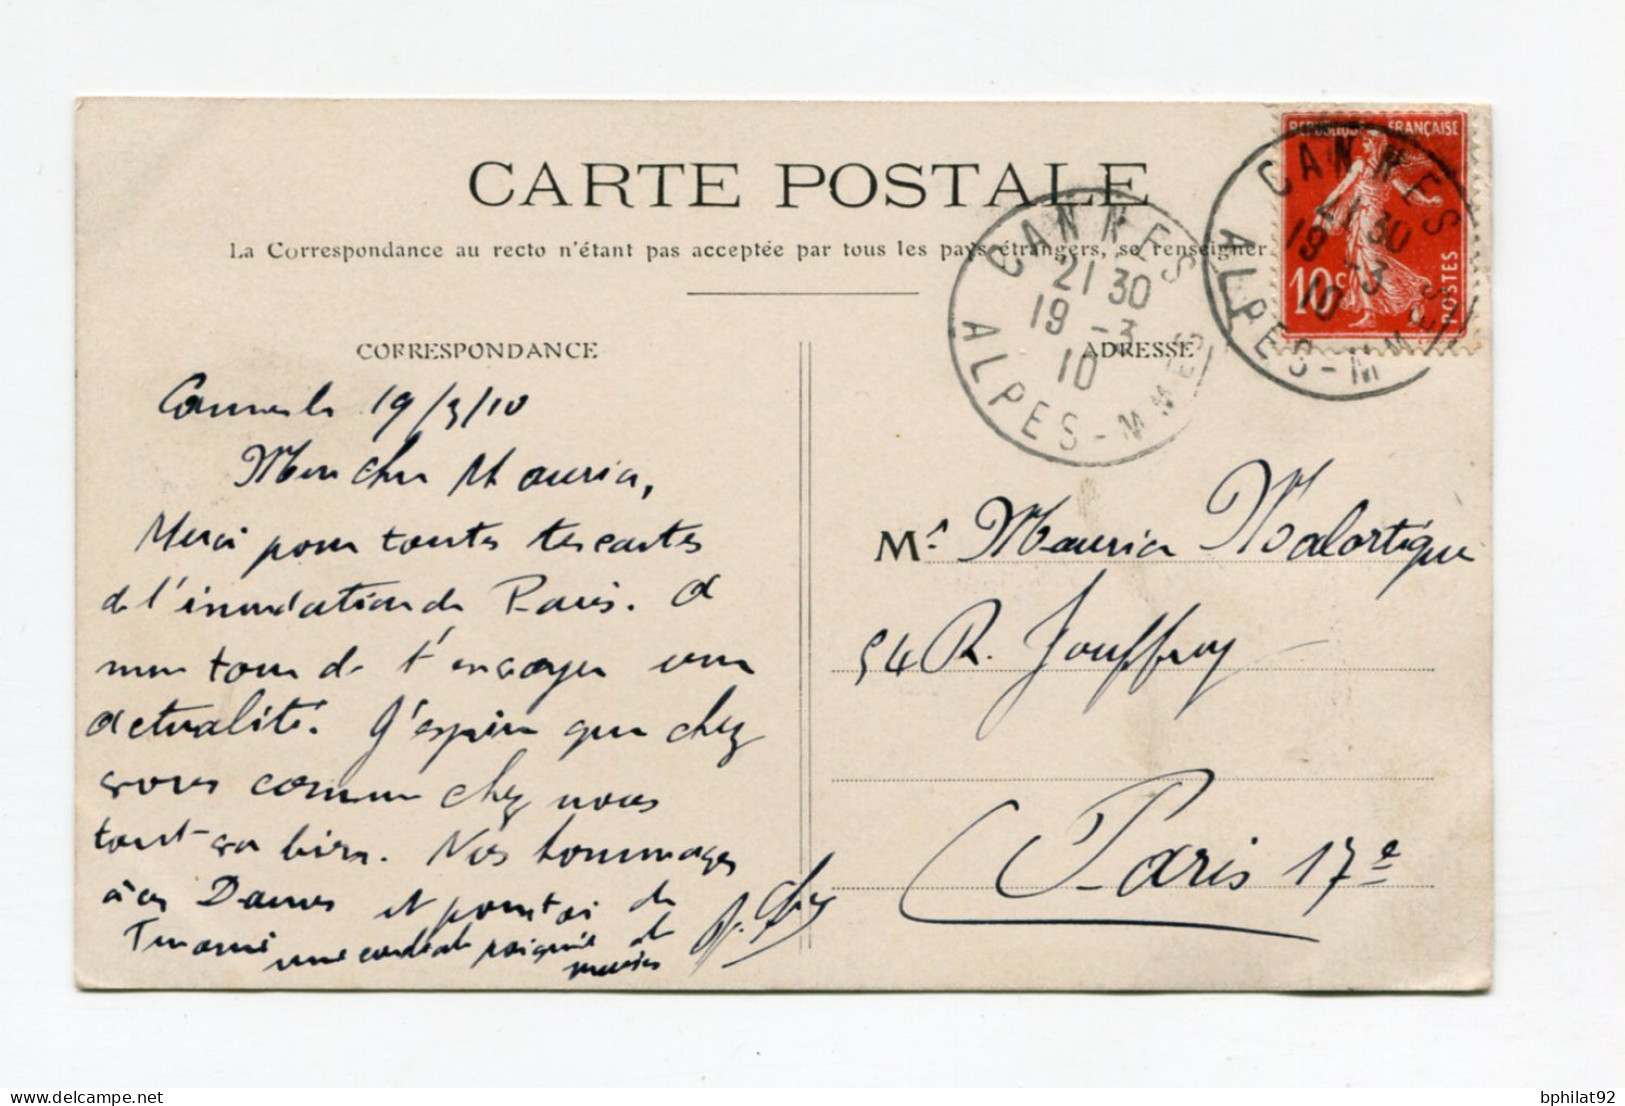 CARTE POSTALE
La Correspondance au recto n'étant pas acceptée par tous les pays étrangers, se renseigner
CORRESPONDANCE
ADRESSE
REPUBLIQUE FRANÇAISE
10c
POSTES
CANNES
21 30
19 -3
10
ALPES-MMES
CANNES
21 30
19 -3
10
ALPES-MMES
Cannes le 19/3/10
Mon cher Maurice,
Merci pour toutes tes cartes
de l'inondation de Paris. A
mon tour de t'envoyer une
actualité. J'espère que chez
vous comme chez nous
tout va bien. Nos hommages
à ces Dames et pour toi de
une cordiale poignée de
mains
Mr Maurice Malortigue
54 R. Jouffroy
Paris 17e
delcampe.net
bphilat92